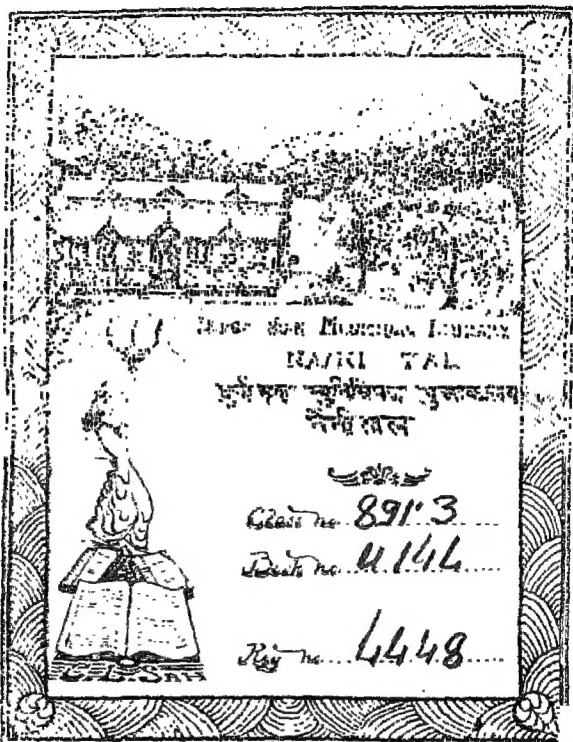 Durga Sah Municipal Library
NAINI TAL
दुर्गासाह म्युनिसिपल पुस्तकालय
नैनीताल
Class no. 891.3
Book no.
Reg no. 4448
L. L. SAH